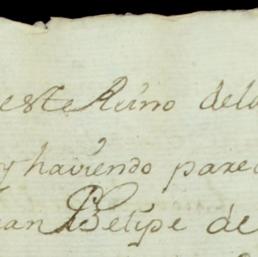 este Reino dela
y haviendo parec
uan Phelipe de